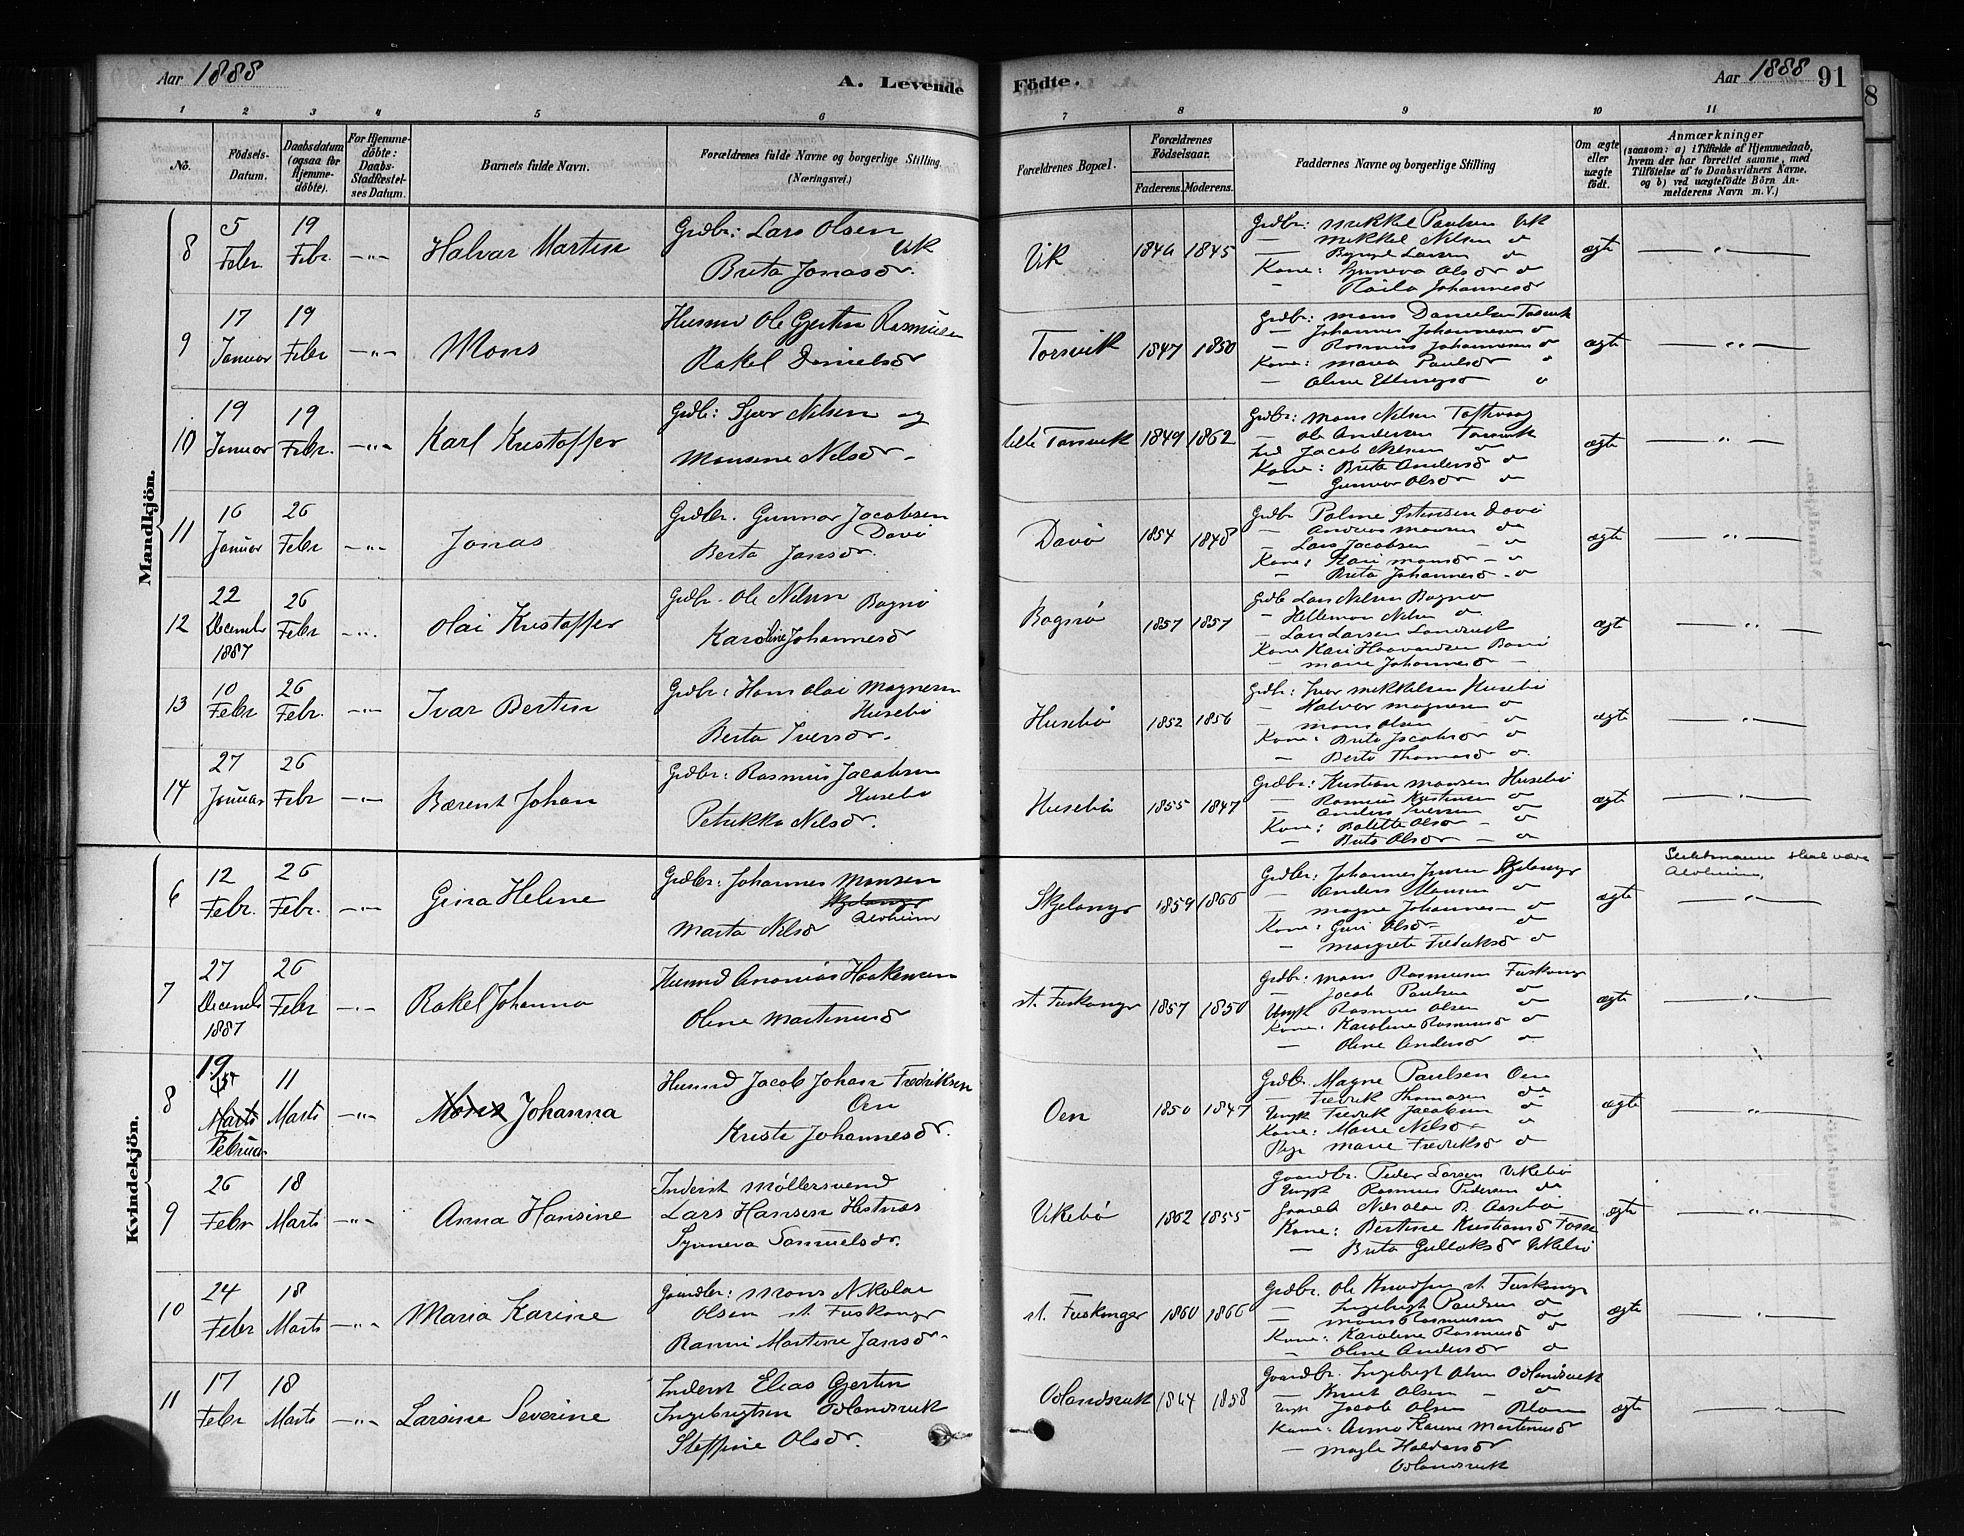 Aar 1888
A. Levende
Födte.
Aar 1888
91
8
1 2 3 4 5 6 7 8 9 10 11
No.
Födsels-Datum.
Daabsdatum (ogsaa for Hjemmedöbte).
For Hjemmedöbte: Daabs Stadfæstelses Datum.
Barnets fulde Navn.
Forældrenes fulde Navne og borgerlige Stilling. (Næringsvei.)
Forældrenes Bopæl.
Forældrenes Födselsaar.
Faderens. Moderens.
Faddernes Navne og borgerlige Stilling
Om ægte eller uægte födt.
Anmærkninger
(saasom: a) i Tilfælde af Hjemmedaab,
hvem der har forrettet samme, med
Tilföielse af to Daabsvidners Navne,
og b) ved uægtefödte Börn An-
melderens Navn m. V.)
Mandkjön.
8
5 Febr
19 Febr
Halvar Martin
Grdbr: Lars Olsen
Vik
Brita Jonasdr.
Vik
1846 1845
Grdbr: Mikkel Paulsen Vik
— Mikkel Nilsen do
— Larsen do
Kone: Synneva Olsdr do
— Johannesdr
ægte
9
17 Januar
19 Febr
Mons
Husmd Ole Gjertin Rasmusen
Rakel Danielsdr
Torsvik
1847 1850
Grdbr: Mons Danielsen Torsvik
— Johannes Johannesen do
— Rasmus Johannesen do
Kone: Maria Paulsdr do
— Oline do
ægte
10
19 Januar
19 Febr.
Karl Kristoffer
Grdb: Sjur Nilsen og
Monsine Nilsdr
lille Torsvik
1849 1862
Grdbr: Mons Nilsen
— Ole Andersen Torsvik
Jacob Nilsen do
Kone: Brita Andersdr do
— Gunvor Olsdr do
ægte
11
16 Januar
26 Febr
Jonas
Grdbr. Gunnar Jacobsen
Davö
Berta Jansdr.
Davö
1854 1848
Grdbr Davö
— Andreas Monsen do
— Lars Jacobsen do
Kone: Kari Monsdr do
— Brita Johannesdr do
ægte
12
22 Decembr 1887
26 Febr
Olai Kristoffer
Grdbr. Ole Nilsen Bognö
Karoline Johannesdr
Bognö
1857 1857
Grdb Lars Nilsen Bognö
— Nilsen do
— Lars Larsen Landsvik
Kone Kari
— Marie Johannesdr
ægte
13
10 Febr
26 Febr.
Ivar Bertin
Grdbr: Hans Olai Magnesen
Husebö
Berta Iversdr.
Husebö
1852 1856
Grdbr: Ivar Mikkelsen Husebö
— Halvor Magnesen do
— Mons Olsen do
Kone: Brita Jacobsdr do
— Berta Thomasdr do
ægte
14
27 Januar
26 Febr
Bærent Johan
Grdbr: Rasmus Jacobsen
Husebö
Petrikka Nilsdr.
Husebö
1855 1847
Grdbr: Kristian Monsen Husebö
— Rasmus Kristensen do
— Anders Iversen do
Kone: Bolette Olsdr do
— Brita Olsdr do
ægte
Kvindekjön.
6
12 Febr.
26 Febr.
Gina Helene
Grdbr: Johannes Monsen
Skjelanger
Alvheim
Marta Nilsdr
Skjelangr
1859 1866
Grdbr: Johannes Jensen Skjelangr
— Anders Monsen do
— Magne Johannesen do
Kone: Guri Olsdr do
— Margrete Fredriksdr do
ægte
skal være
Alvheim,
7
27 Decembr 1887
26 Febr
Rakel Johanna
Husmd Ananias Haakensen
Oline Martinusdr
st. Fuskangr
1857 1850
Grdbr: Mons Rasmusen Fuskangr
— Jacob Paulsen do
Ungk Rasmus Olsen do
Kone: Karoline Rasmusdr do
— Oline Andersdr do
ægte
8
19
Marts
Februar
11 Marts
Mons Johanna
Husmd Jacob Johan Fredriksen
Oen
Krista Johannesdr.
Oen
1850 1847
Grdbr. Magne Paulsen Oen
— Fredrik Thomasen do
Ungk Fredrik Jacobsen do
Kone: Marie Nilsdr do
Pige Marie Fredriksdr do
ægte
9
26 Febr
18 Marts
Anna Hansine
Inderst Möllersvend
Lars Hansen Hestnæs
Synneva Samuelsdr.
Vikebö
1862 1855
Gaardbr. Peder Larsen Vikebö
Ungk Rasmus Pedersen do
Gaardb Nils Olai B. Aasebö
Kone: Bertine Kristiansd Fosse
— Brita Gulleiksdr Vikebö
ægte
10
24 Febr
18 Marts
Maria Karine
Gaardbr: Mons Nikolai
Olsen st. Fuskangr
Ranni Martine Jansdr
st. Fuskanger
1860 1866
Grdbr. Ole Knudsen st. Fuskangr
— Ingebrigt Paulsen do
— Mons Rasmusen do
Kone: Karoline Rasmusd do
— Oline Andersdr do
ægte
11
17 Febr
18 Marts
Larsine Severine
Inderst Elias Gjertin
Ingebrigtsen Odlandsvik
Steffine Olsdr.
Odlandsvik
1864 1858
Gaardbr. Ingebrigt Olsen Odlandsvik
— Knut Olsen — do
Ungk Jacob Olsen
Kone: Anna Karine Martinusdr
— Magle Haldorsdr
Odlandsvik
ægte